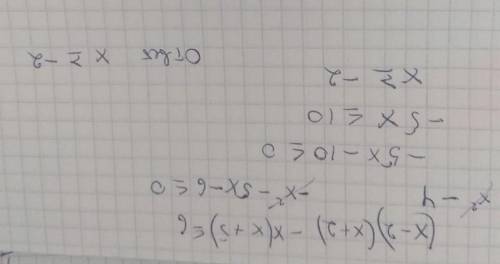 (x-2)(x+2) - x(x+5) ≤ 6
x² - 4 - x² - 5x - 6 ≤ 0
-5x - 10 ≤ 0
-5x ≤ 10
x ≥ -2
Ответ x ≥ -2